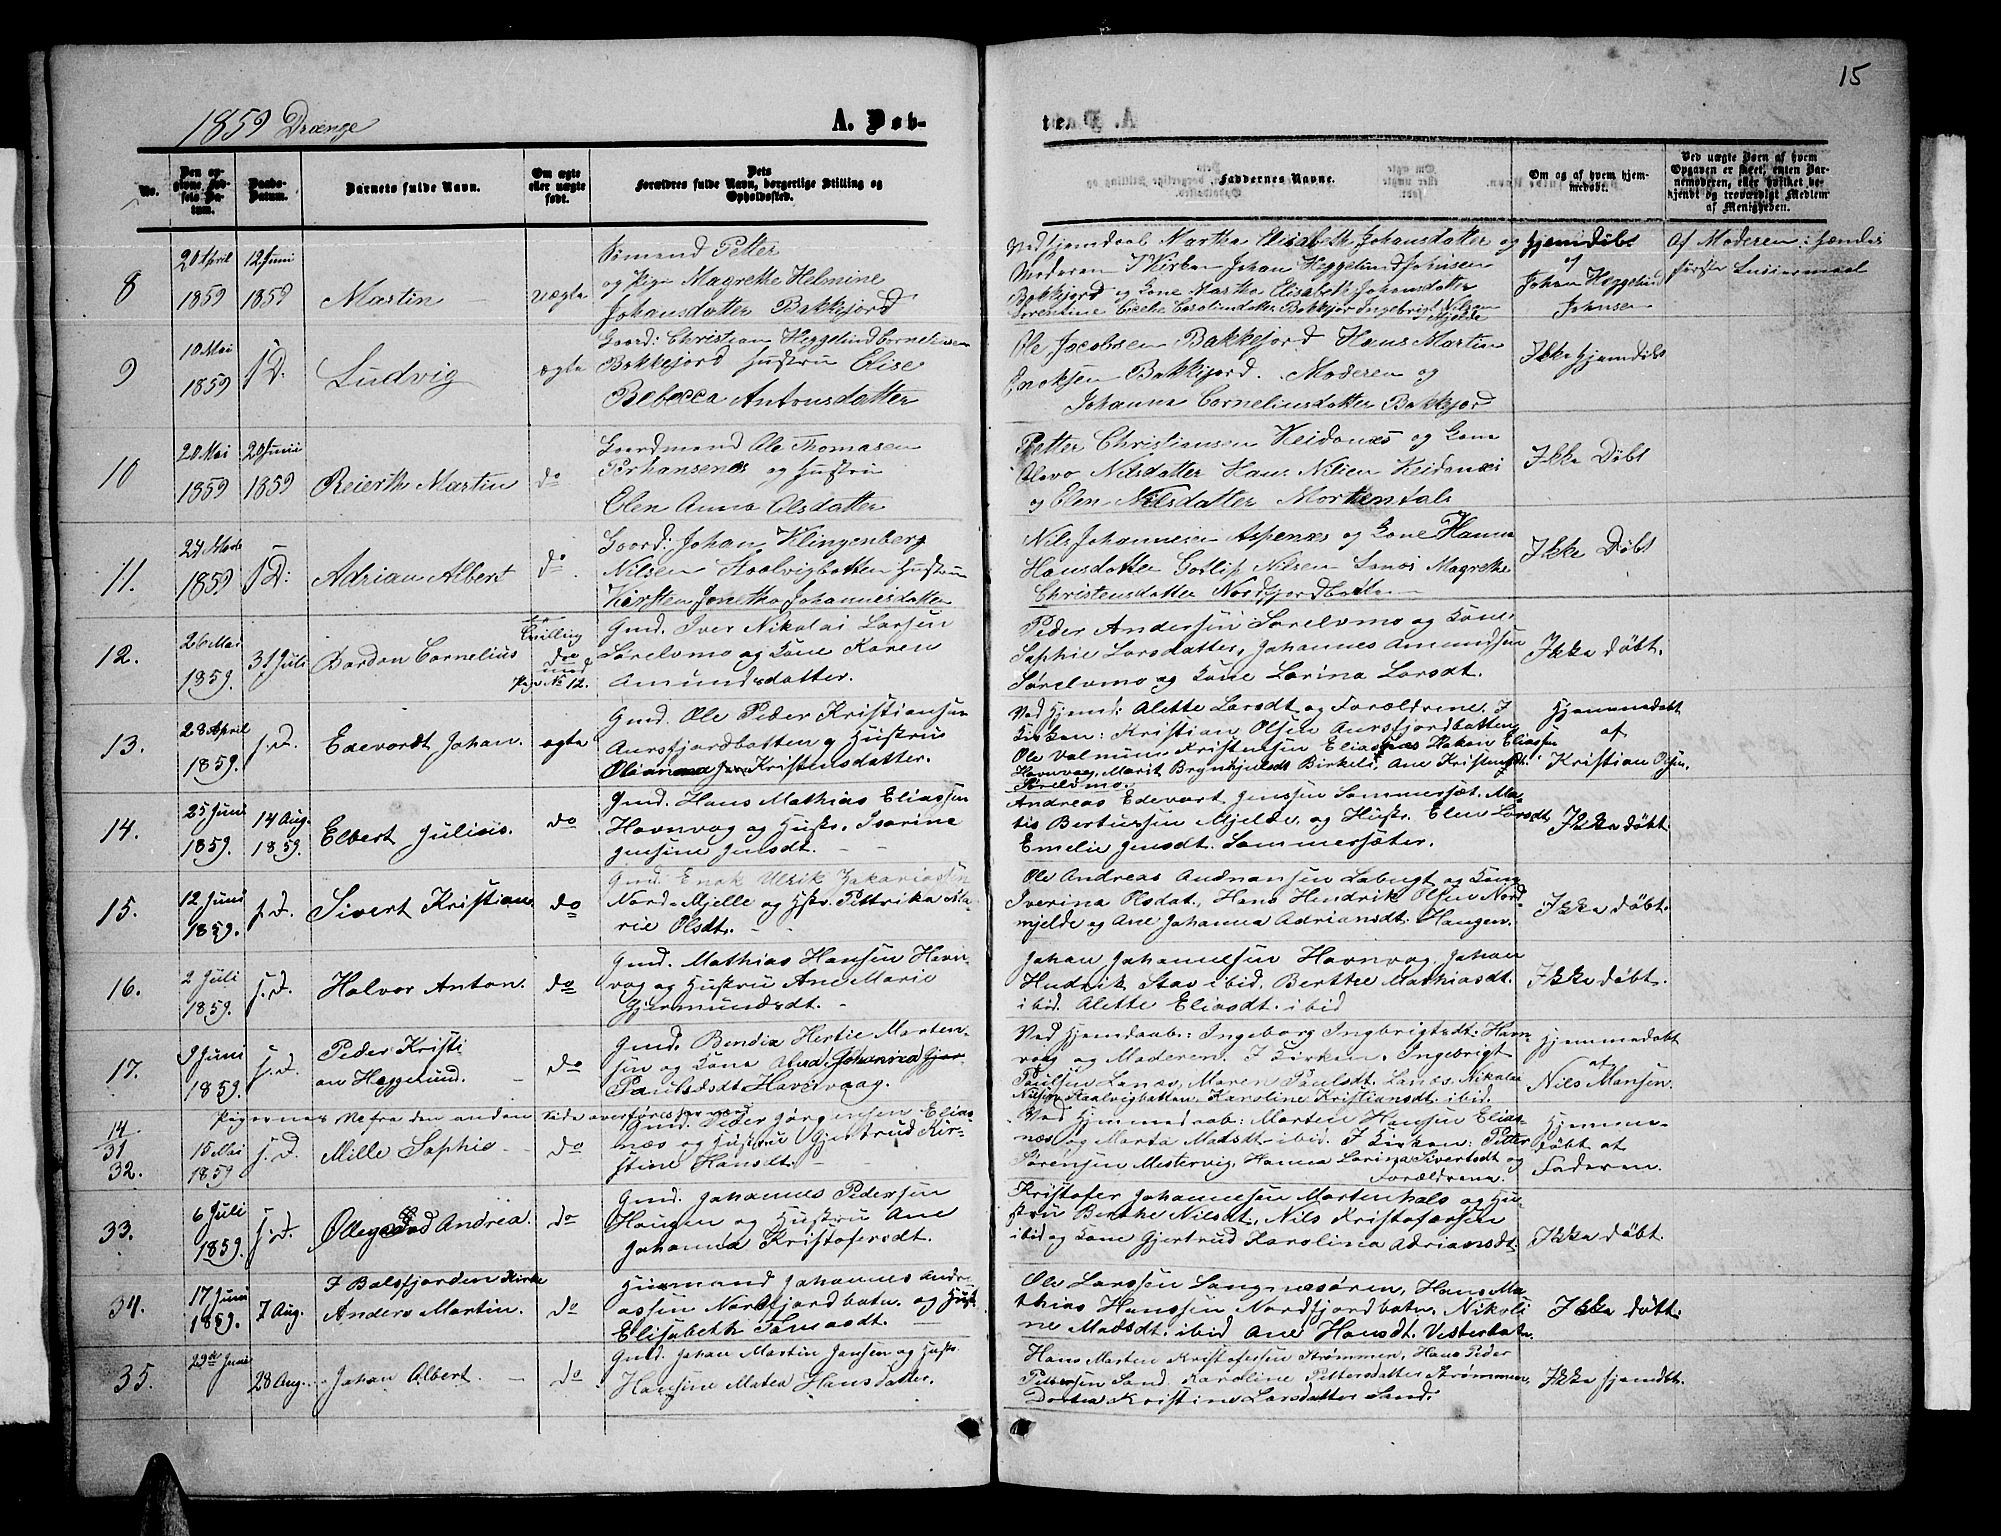 15
1859 Drænge
A. Døb-
te.
No.
Den opgivne Fødsels Datum.
Daabs-Datum.
Barnets fulde Navn.
Om ægte eller uægte født.
Dets Forældres fulde Navn, borgerlige Stilling og Opholdssted.
Faddernes Navne.
Om og af hvem hjemmedøbt.
Ved uægte Børn af hvem Opgaven er skeet, enten Barnemoderen, eller hvilket bekjendt og troværdigt Medlem af Menigheden.
8
20 April 1859
12 Juni 1859
Martin
Uægte
Petter
og Pige Magrethe Helmine
Johansdatter Bakkejord
Ved Hjemdaab Martha Elisabeth Johansdatter og
Moderen I Kirken Johan Heggelund Johnsen
Bakkejord og Kone Martha Elisabeth Johansdatter
hjemdøbt
af
Johan Heggelund
Johnsen
Af Moderen: hendes
første Leiermaal
9
10 Mai 1859
J D.
Ludvig
ægte
Gaard: Christian Heggelund Cornelius
Bakkejord Hustru Elise
Rebecca Antonsdatter
Ole Jacobsen Bakkejord Hans Martin
Enoksen Bakkejord. Moderen og
Johanna Corneliusdatter Bakkejord
Ikke hjemdøbt
10
20 Mai 1859
20 Junii 1859
Reierth Martin
do
Gaardmand Ole Thomasen
Torhansenes og Hustru
Olen Anna Olsdatter
Petter Christiansen Keidones og Kone
Olava Nilsdatter Hans Nilsen Keidanes
og Elen Nilsdatter Mortenhals
Ikke Døbt
11.
1859
J D:
Adrian Albert
do
Gaard: Johan Klingenberg
Nilsen Skaalvigbotten Hustru
Kirsten Jonetha Johannesdatter
Nils Johannesen Aspenes og Kone Hanna
Hansdatter Gotlip Nilsen Lanes Magrethe
Christensdatter Nordfjordbotten
Ikke Døbt
12.
26 Mai 1859.
31 Juli
Dordon Cornelius
Tvilling
do
med
Pige No 12.
Gmd. Iver Nikolai Larsen
Sørelvmo og Kone Karen
Amundsdatter.
Peder Andersen Sørelvmo og Kone
Sophie Larsdatter, Johannes Amundsen
Sørelvmo og Kone Larina Larsdt.
Ikke døbt.
13.
28 April 1859.
J. D.
Edevardt Johan.
ægte
Gmd. Ole Peder Kristiansen
Aursfjordbotten og Hustru
Kristensdatter.
Ved Hjemd: Alette Larsdt og Forældrene. I
Kirken: Kristian Olsen Aursfjordbotten,
Ole Valmun Kristensen Eliasnæs Hakon Eliassen
Havnvag, Marit Brynhjulsdt Birkeli, Ane Kristensdt.
Sørelvmo.
Hjemmedøbt
af
Kristian Olsen.
14.
25 Juni 1859.
14 Aug. 1859.
Elbert Julius.
do
Gmd. Hans Mathias Eliassen
Havnvag og Hustr. Isarine
Jensine Jensdt.
Andreas Edevart Jenssen Sommersæt. Ma-
tis Bertussen Mjelde, og Hustr. Elen Larsdt,
Emelie Jensdt. Sommersæter.
Ikke døbt
15.
12 Juni 1859.
J. D.
Sivert Kristian
do
Gmd. Enok Ulrik Zakariassen
Nord-Mjelle og Hstr. Pettrika Ma-
rie Olsdt.
Ole Andreas Andriansen Labugt og Kone
Iverina Olsdat, Hans Hendrik Olsen Nord-
mjelde og Ane Johanna Adriansdt. Haugen.
Ikke døbt.
16.
2 Juli 1859.
J. D.
Halvor Anton.
do
Gmd. Mathias Hansen Havn-
vag og Hustru Ane Marie
Gjermundsdt.
Johan Johannesen Havnvag, Johan
Hendrik Stav ibid, Berthe Mathiasdt.
ibid. Alette Eliasdt. ibid
Ikke døbt.
17.
9 Juni 1859.
J. D.
Peder Kristi
an Heggelund.
do
Gmd. Bendix Hertie Marten-
sen og Kone
Paulsdt Havnvaag.
Ved Hjemdaab: Ingeborg Ingbrigtsdt. Havn-
vaag og Moderen. I Kirken. Ingebrigt
Paulsen Lanæs, Maren Paulsdt. Lanæs. Nikolai
Nilsen Skaalvigbotten, Karoline Kristiansdt. ibid.
hjemmedøbt
af
Nils Mansen.
Pigernes No fra den anden Side overføres
14
31
32.
15 Mai 1859
J. D.
Mille Sophie
do
Gmd. Peder Jørgensen Elias-
næs og Hustru Gjertrud Kir-
stine Hansdt.
Ved Hjemmedaab: Marten Hansen Elias-
næs og Marda Madsdt. ibid. I Kirken: Petter
Sørensen Mestervig, Hanna Larina Sivertsdt og
Forældrene.
Hjemme-
døbt af
Faderen.
33.
6 Juli 1859.
J. D.
Ollegaard Andrea.
do
Gmd. Johannes Pedersen
Haugen og Hustru Ane
Johanna Kristofersdt.
Kristofer Johannesen Martenhals og Hu-
stru Berthe Nilsdt, Nils Kristofersen
ibid og Kone Gjertrud Karolina Adriansdt.
Ikke døbt.
34.
17 Juni 1859.
7 Aug.
I Balsfjorden Kirke
Anders Martin.
do
Huusmand Johannes Andr-
eassen Nordfjordbotn. og Hust.
Elisabeth Tomasdt.
Ole Larssen Langnæsøren, Hans Ma-
thias Hanssen Nordfjordbotn, Nikoli
ne Madsdt. ibid Ane Hansdt. Vesterbotn.
Ikke døbt.
35.
29de Juni
28 Aug.
Johan Albert.
do
Gmd. Johan Martin Jansen og Hustr.
Hansine Matea Hansdatter.
Hans Marten Kristofersen Strømmen, Hans Peder
Pedersen Sand, Karoline Pettersdatter Strømmen
Dortea Kristine Larsdatter Sand.
Ikke hjemdbt.